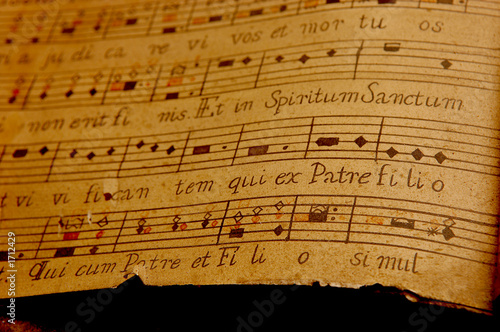 judi ca re vi vos et mor tu os
non erit fi nis. Et in Spiritum Sanctum
et vi vi fi can tem qui ex Patre fi li o
Qui cum Patre et Fi li o si mul
#1712429